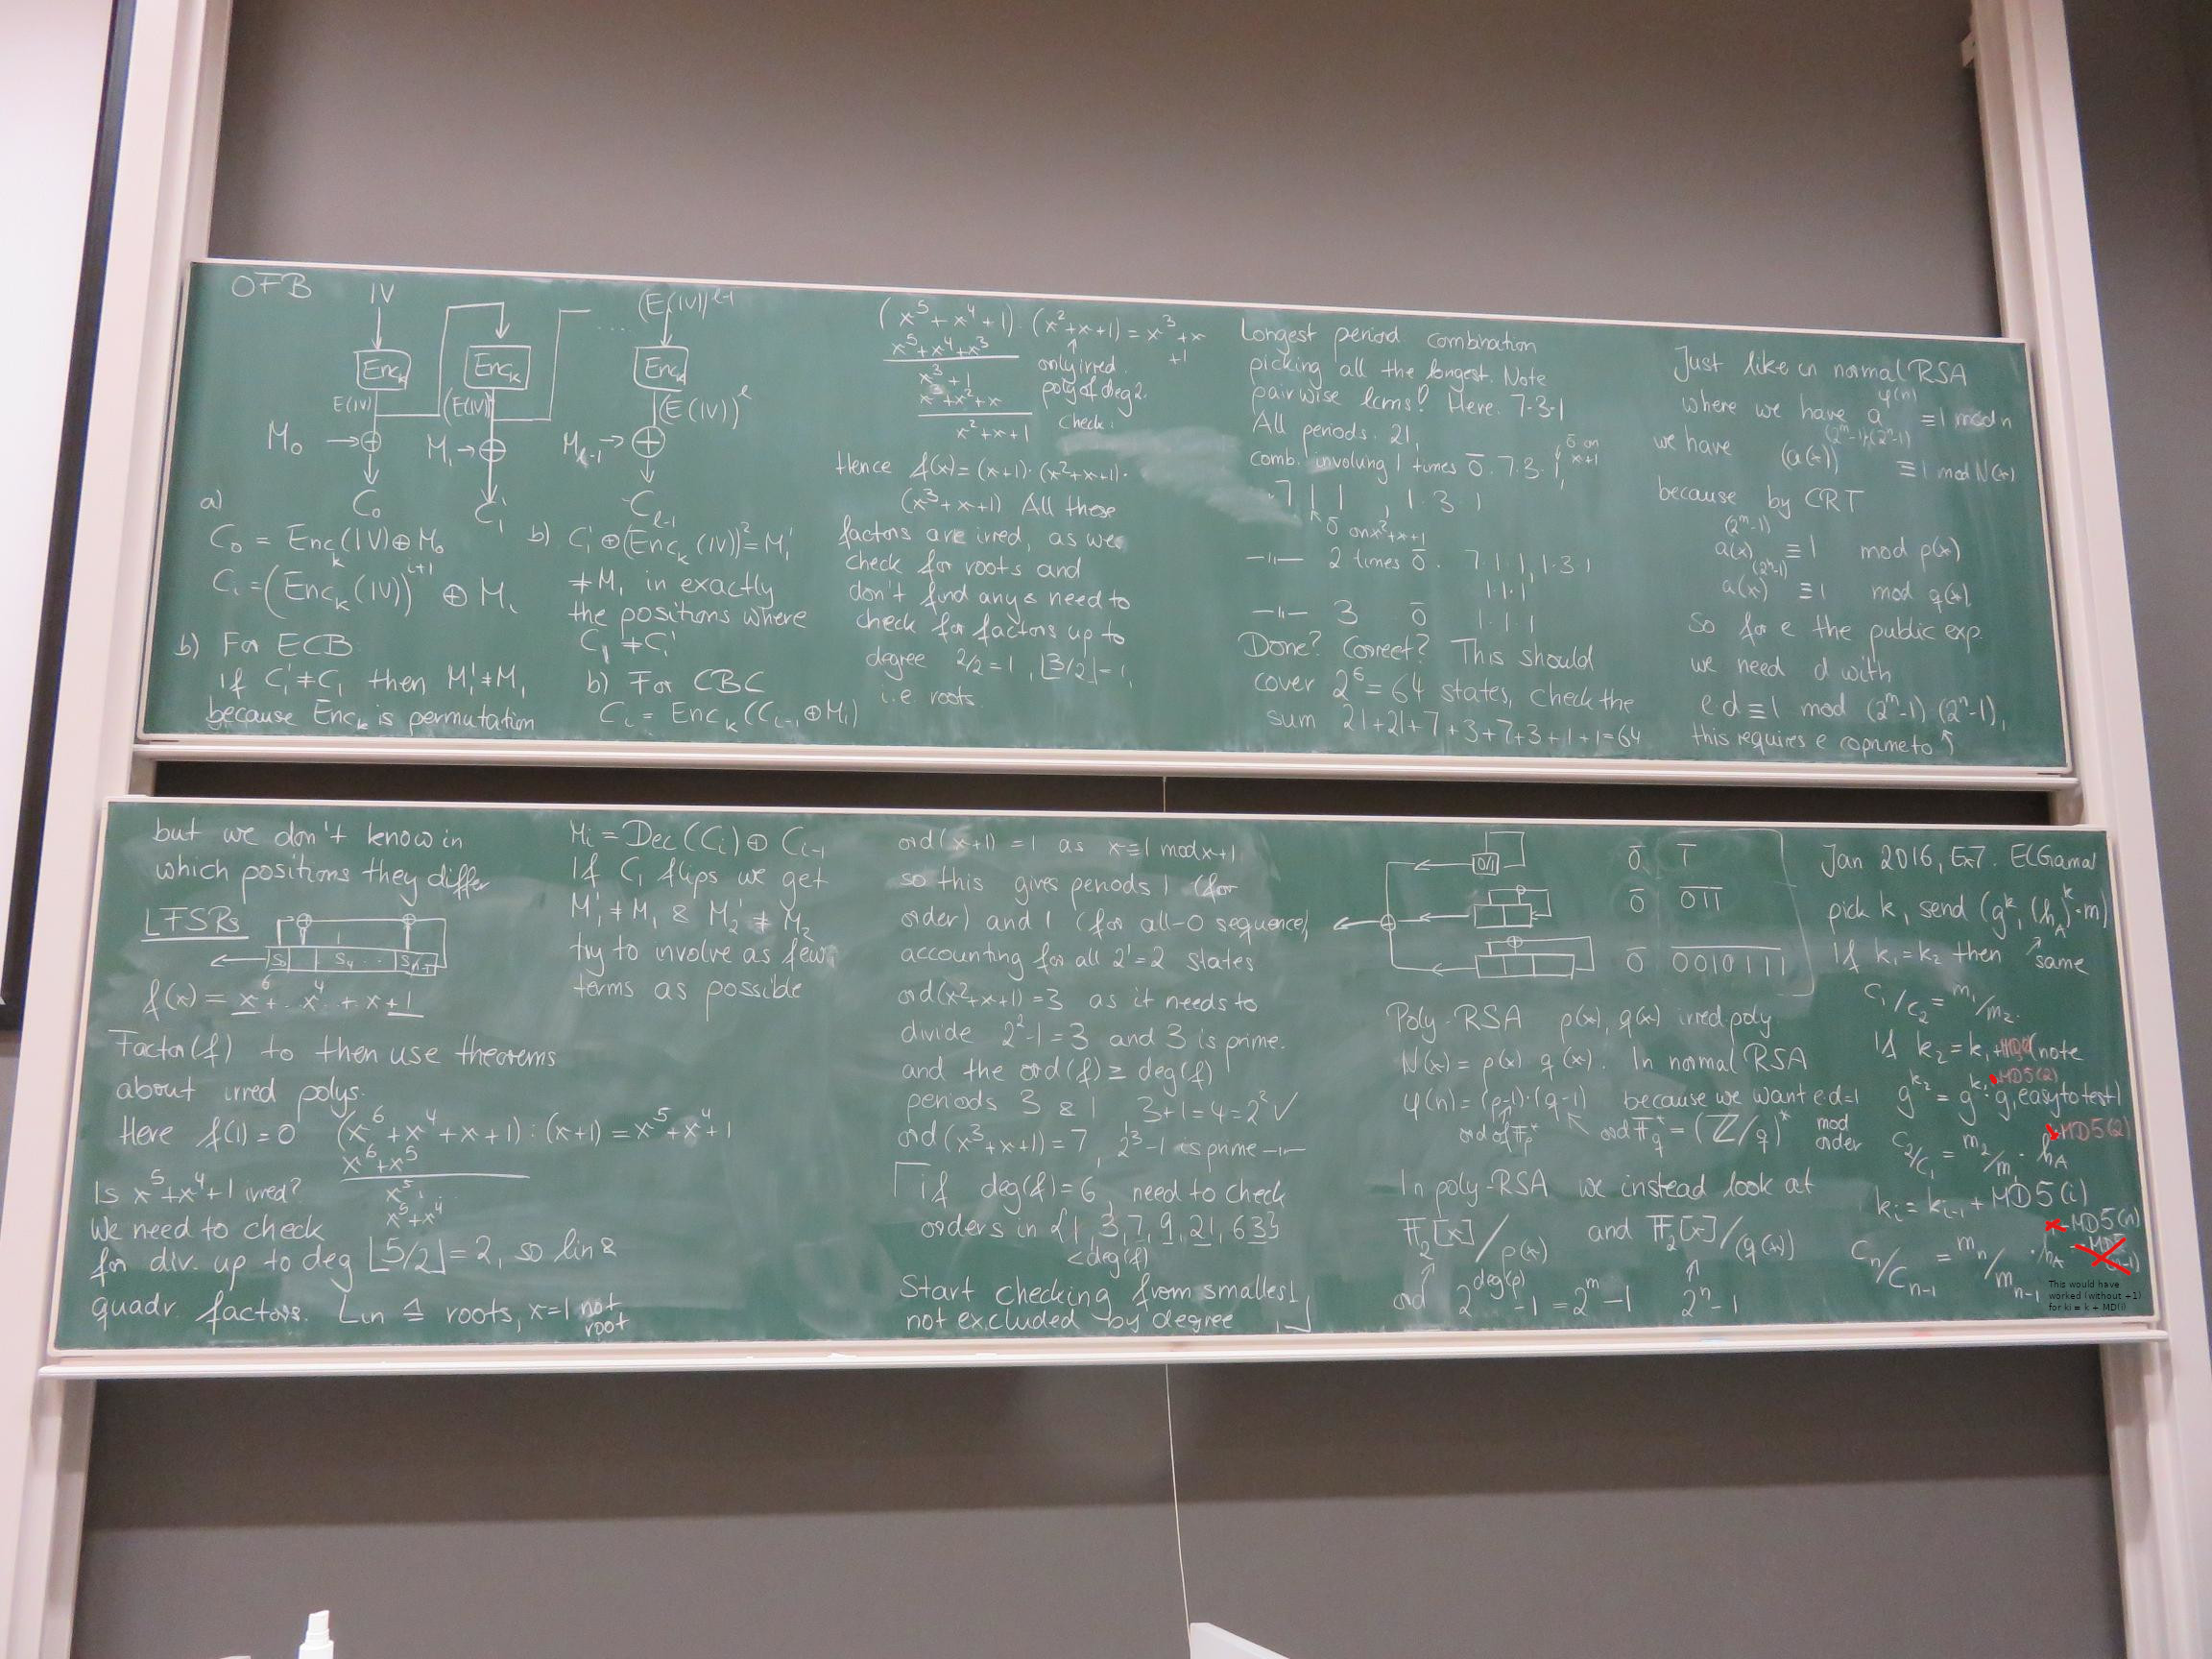 OFB
IV
(E(IV))^{l-1}
Enc_k
Enc_k
....
Enc_k
E(IV)
(E(IV))
(E(IV))^l
M_0 → ⊕
M_1 → ⊕
M_{l-1} → ⊕
C_0
C_1
C_{l-1}
a)
C_0 = Enc_k(IV) ⊕ M_0
C_i = (Enc_k(IV))^{i+1} ⊕ M_i
b) For ECB
if C_1' ≠ C_1 then M_1' ≠ M_1
because Enc_k is permutation
b) C_1' ⊕ (Enc_k(IV))^2 = M_1'
≠ M_1 in exactly
the positions where
C_1 ≠ C_1'
b) For CBC
C_i = Enc_k(C_{i-1} ⊕ M_i)
(x^5 + x^4 + 1) : (x^2 + x + 1) = x^3 + x + 1
x^5 + x^4 + x^3
x^3 + 1
x^3 + x^2 + x
x^2 + x + 1
only irred.
poly of deg 2.
Check:
Hence f(x) = (x+1) · (x^2+x+1) ·
(x^3+x+1) All these
factors are irred, as we
check for roots and
don't find any & need to
check for factors up to
degree 2/2 = 1, ⌊3/2⌋ = 1,
i.e roots.
Longest period combination
picking all the longest. Note
pairwise lcms! Here. 7·3·1
All periods. 21,
comb. involving 1 times 0̄. 7·3·1,
0̄ on x+1
7·1·1, 1·3·1
0̄ on x^2+x+1
—"— 2 times 0̄. 7·1·1, 1·3·1
1·1·1
—"— 3 0̄ 1·1·1
Done? Correct? This should
cover 2^6 = 64 states, check the
sum 21+21+7+3+7+3+1+1=64
Just like in normal RSA
where we have a^{φ(n)} ≡ 1 mod n
we have (a(x))^{(2^m-1)(2^n-1)} ≡ 1 mod N(x)
because by CRT
a(x)^{(2^m-1)} ≡ 1 mod p(x)
a(x)^{(2^n-1)} ≡ 1 mod q(x).
So for e the public exp.
we need d with
e·d ≡ 1 mod (2^m-1)(2^n-1),
this requires e coprime to ↑
but we don't know in
which positions they differ
LFSRs
S_0 S_4 ... S_{n-1}
f(x) = x^6 + x^4 + x + 1
Factor(f) to then use theorems
about irred polys.
Here f(1) = 0 (x^6 + x^4 + x + 1) : (x+1) = x^5 + x^4 + 1
x^6 + x^5
x^5
x^5 + x^4
Is x^5 + x^4 + 1 irred?
We need to check
for div. up to deg ⌊5/2⌋ = 2, so lin &
quadr factors. Lin ≙ roots, x=1 not root
M_i = Dec(C_i) ⊕ C_{i-1}
If C_1 flips we get
M_1' ≠ M_1 & M_2' ≠ M_2
try to involve as few
terms as possible
ord(x+1) = 1 as x ≡ 1 mod x+1
so this gives periods 1 (for
order) and 1 (for all-0 sequence)
accounting for all 2^1 = 2 states
ord(x^2+x+1) = 3 as it needs to
divide 2^2-1 = 3 and 3 is prime.
and the ord(f) ≥ deg(f)
periods 3 & 1, 3+1 = 4 = 2^2 ✓
ord(x^3+x+1) = 7, 2^3-1 is prime —"—
if deg(f) = 6, need to check
orders in {1, 3, 7, 9, 21, 63}
< deg(f)
Start checking from smallest
not excluded by degree
0/1
0̄ 1̄
0̄ 011
0̄ 0010111
Poly-RSA p(x), q(x) irred poly
N(x) = p(x) q(x). In normal RSA
φ(n) = (p-1)·(q-1) because we want e·d=1
ord of F_p^* ord F_q^* = (Z/q)^* mod order
In poly-RSA we instead look at
F_2[x]/p(x) and F_2[x]/(q(x))
ord 2^{deg(p)} - 1 = 2^m - 1 2^n - 1
Jan 2016, Ex 7. ElGamal
pick k, send (g^k, (h_A)^k · m)
If k_1 = k_2 then same
c_1/c_2 = m_1/m_2.
If k_2 = k_1 + note
MD5(2)
g^{k_2} = g^{k_1} · g, easy to test!
MD5(2)
c_2/c_1 = m_2/m_1 · h_A
k_i = k_{i-1} + MD5(i)
MD5(n)
C_n/C_{n-1} = m_n/m_{n-1} · h_A
This would have
worked (without -1)
for ki = k + MD(i)